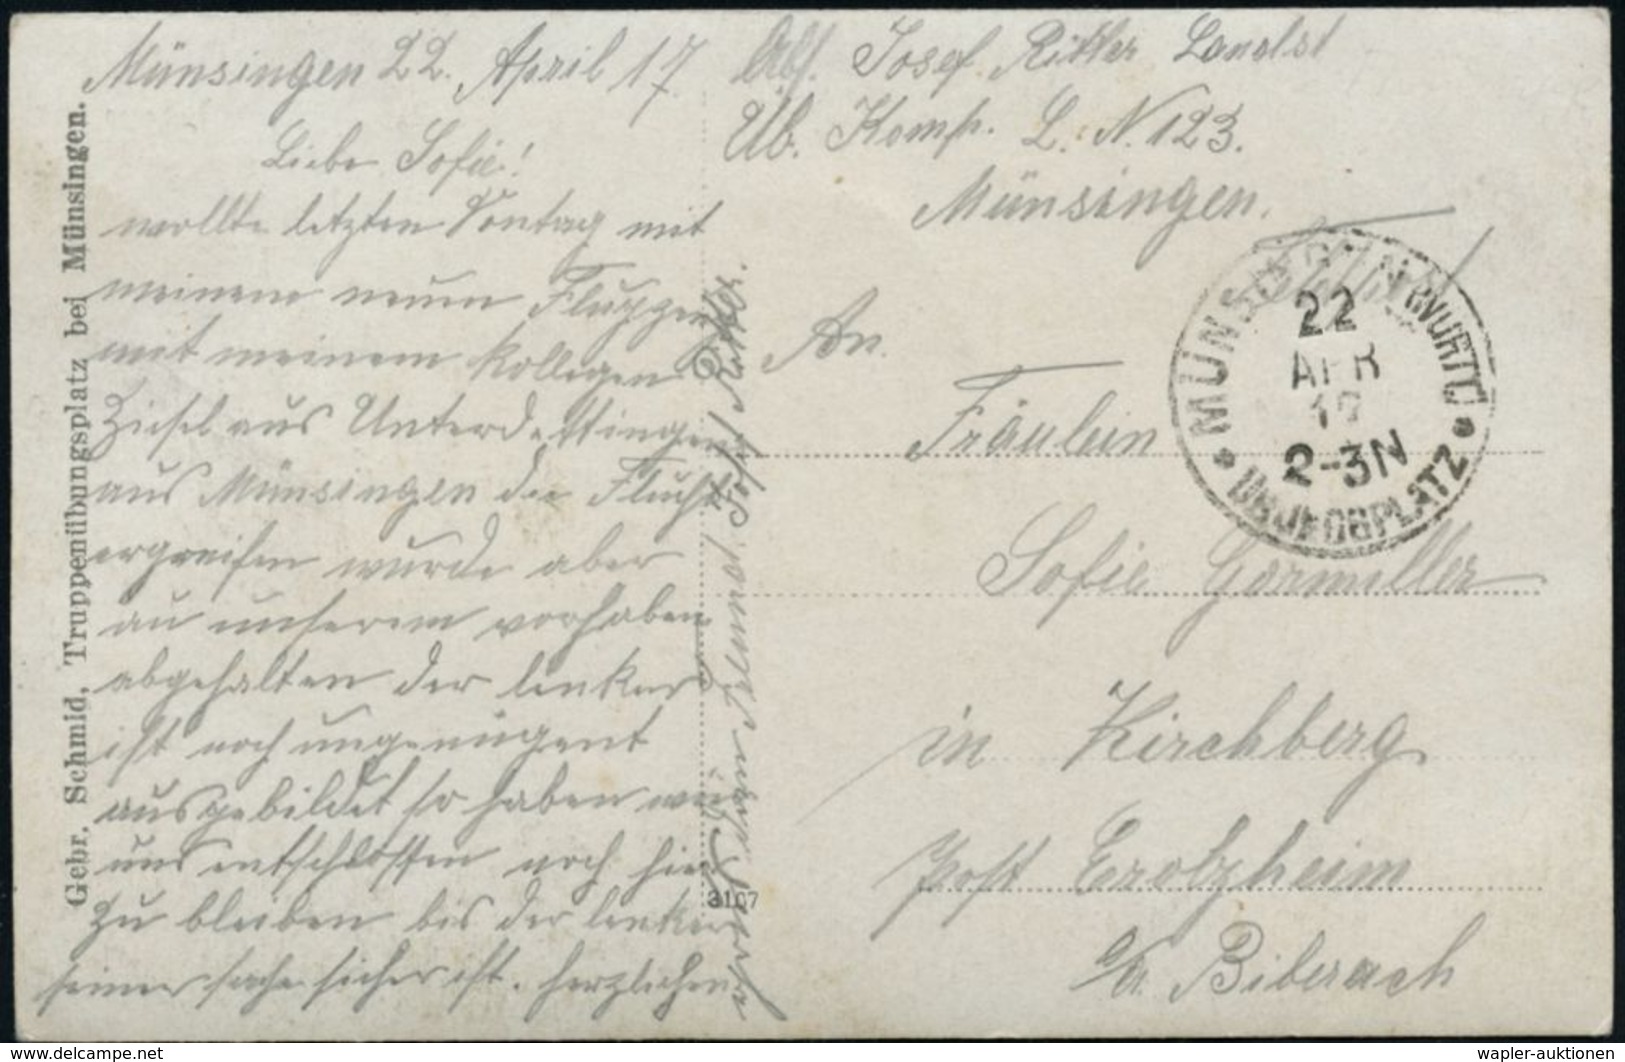 Münsingen 22. April 17.
Liebe Sofie!
wollte letzten Sontag mit
meinem neuen Flugzeug
mit meinem Kollegen
Ziesel aus Unterdettingen
aus Münsingen die Flucht
ergreifen wurde aber
an unserem vorhaben
abgehalten der lenker
ist noch ungenügent
ausgebildet so haben wir
uns entschlossen noch hier
zu bleiben bis der lenker
seiner sache sicher ist. herzlichen
Josef Ritter.
Abs. Josef Ritter Landst
Üb. Komp. L. N. 123.
Münsingen.
An
Fräulein
Sofie Germiller
in Kirchberg
Post Erolzheim
o/a Biberach
MÜNSINGEN (WÜRTT)
22
APR
17
2-3N
ÜBUNGSPLATZ
Gebr. Schmid, Truppenübungsplatz bei Münsingen.
3107
www.delcampe.net
wapler-auktionen